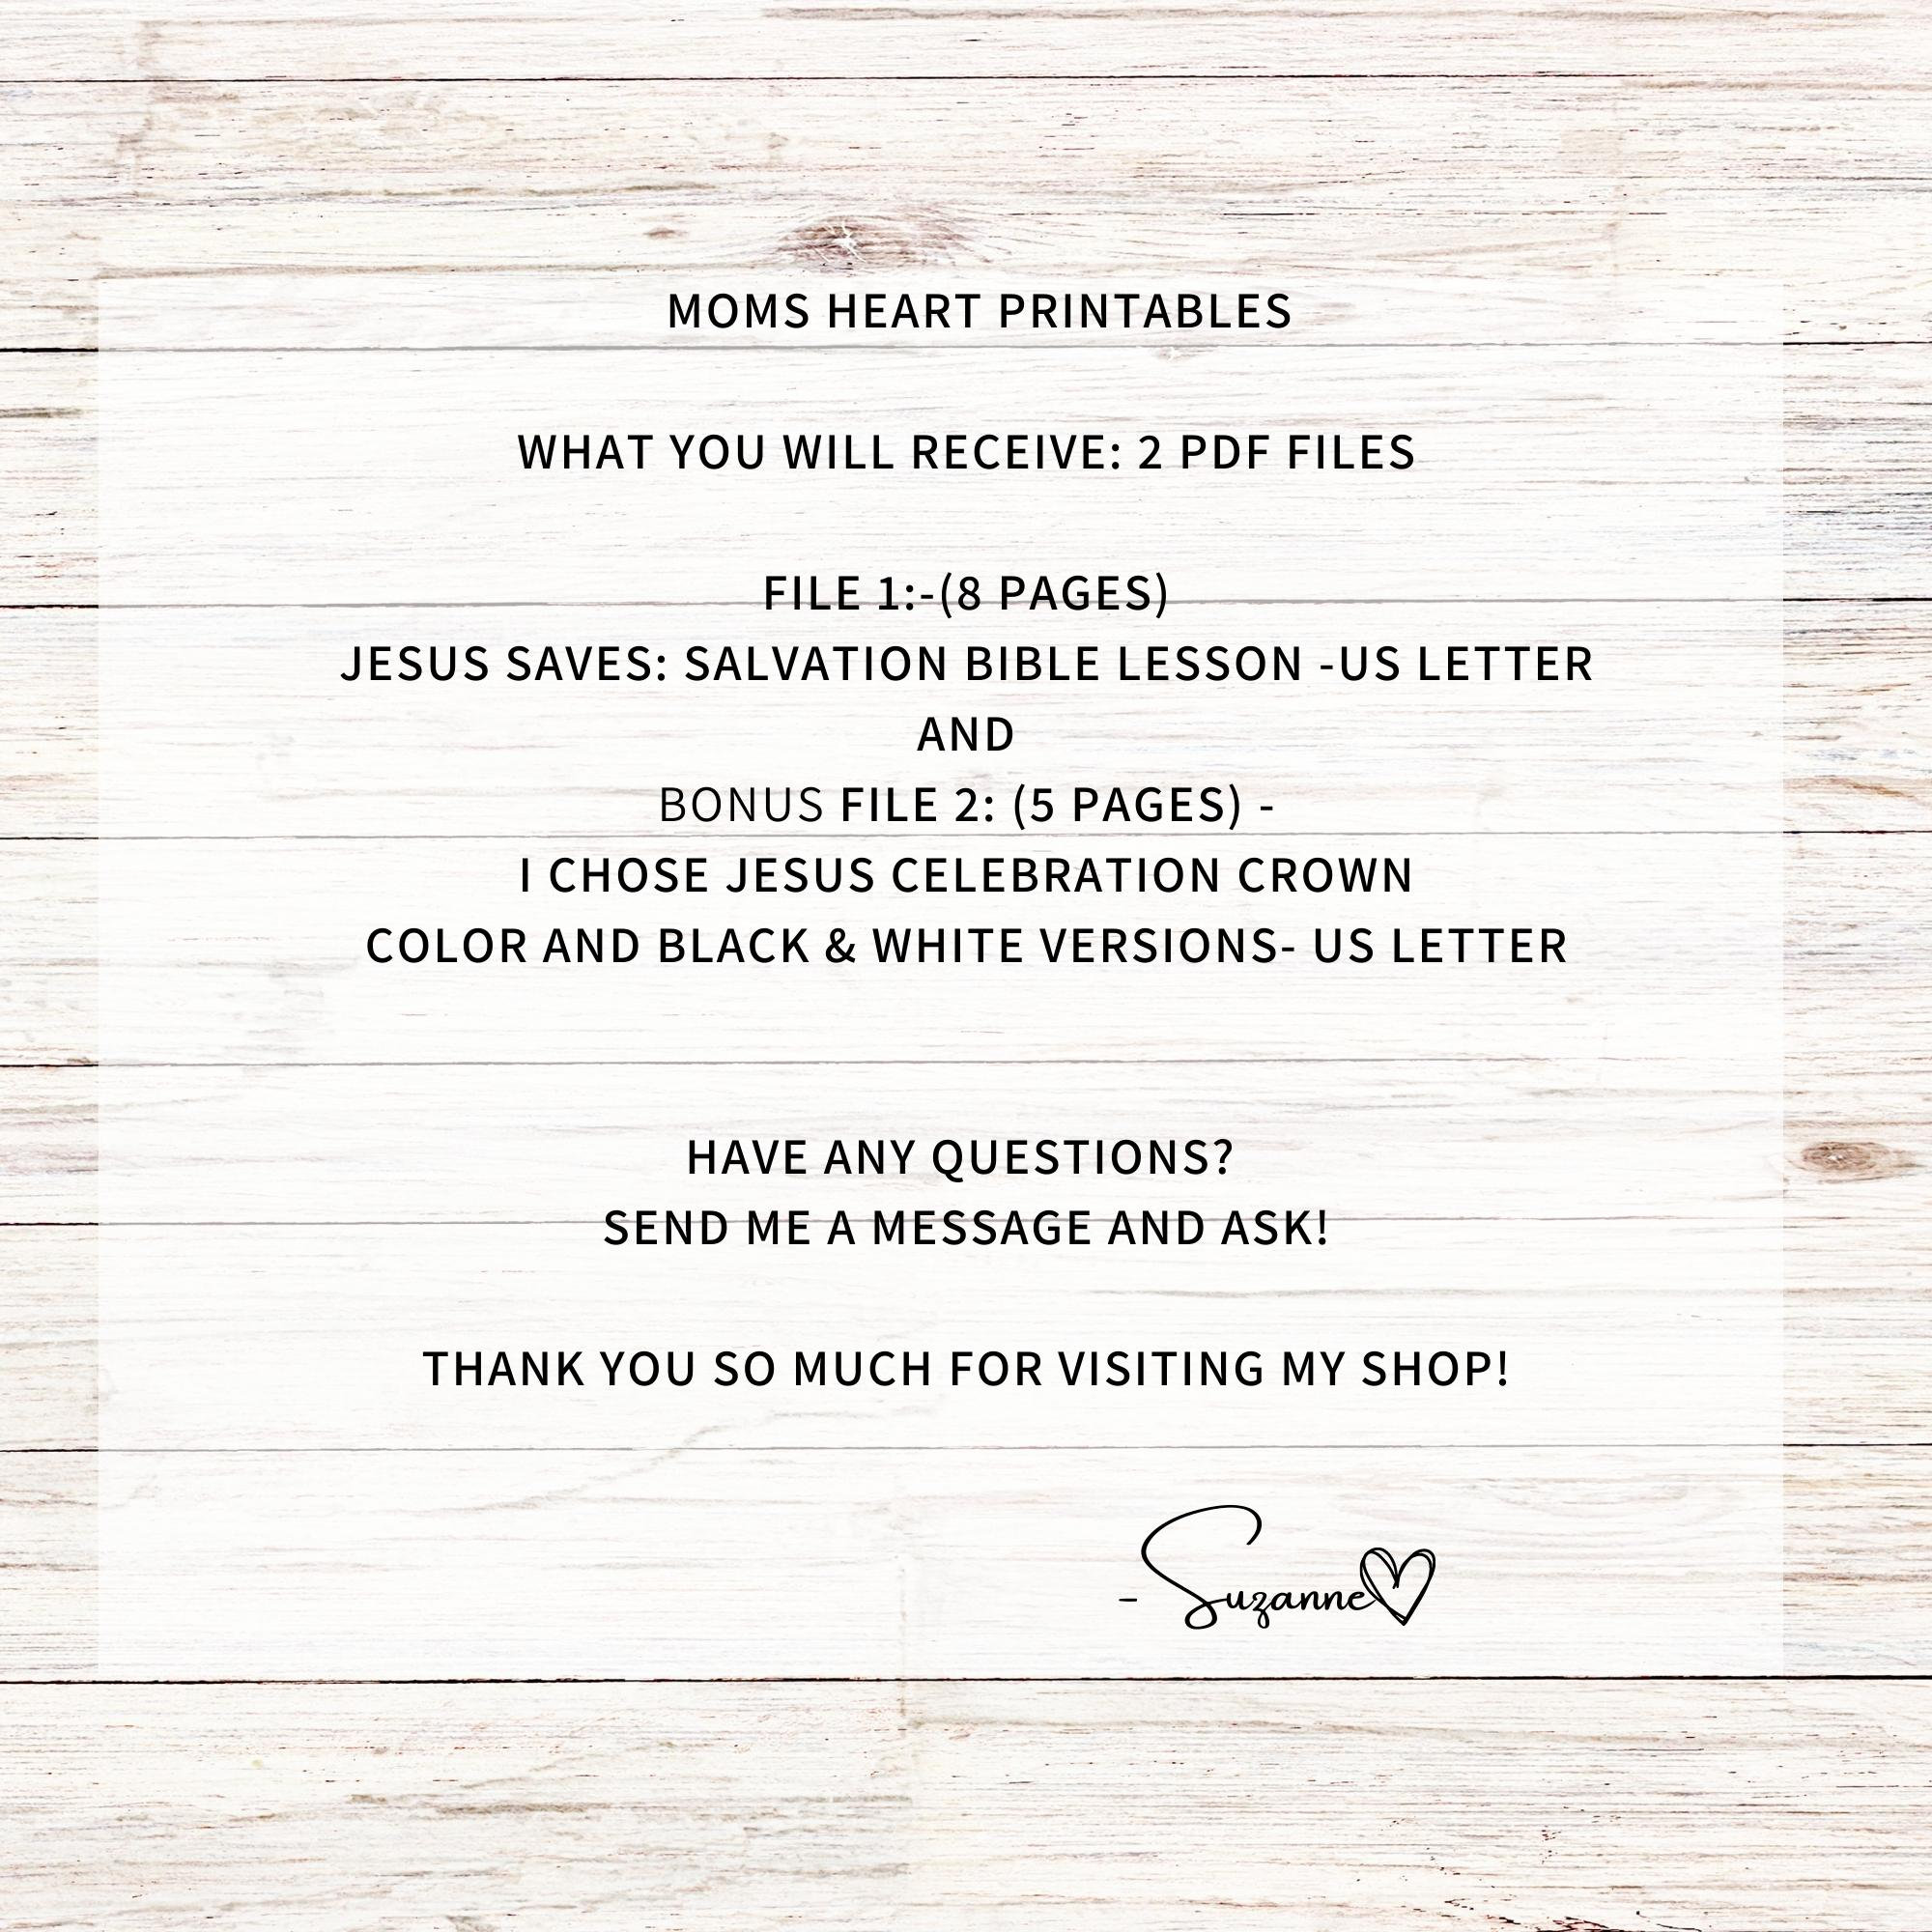 MOMS HEART PRINTABLES
WHAT YOU WILL RECEIVE: 2 PDF FILES
FILE 1:-(8 PAGES)
JESUS SAVES: SALVATION BIBLE LESSON -US LETTER
AND
BONUS FILE 2: (5 PAGES) -
I CHOSE JESUS CELEBRATION CROWN
COLOR AND BLACK & WHITE VERSIONS- US LETTER
HAVE ANY QUESTIONS?
SEND ME A MESSAGE AND ASK!
THANK YOU SO MUCH FOR VISITING MY SHOP!
- Suzanne